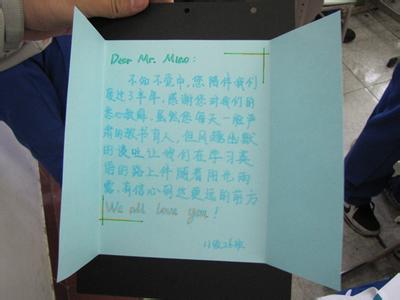 Dear Mr. Miao:
不知不觉中,您陪伴我们
度过了半年,感谢您对我们的
悉心教诲,虽然您每天一脸严
肃的教书育人,但风趣幽默
的谈吐让我们在学习英
语的路上伴随着阳光雨
露,有信心到达更远的前方
We all love you!
11级26班